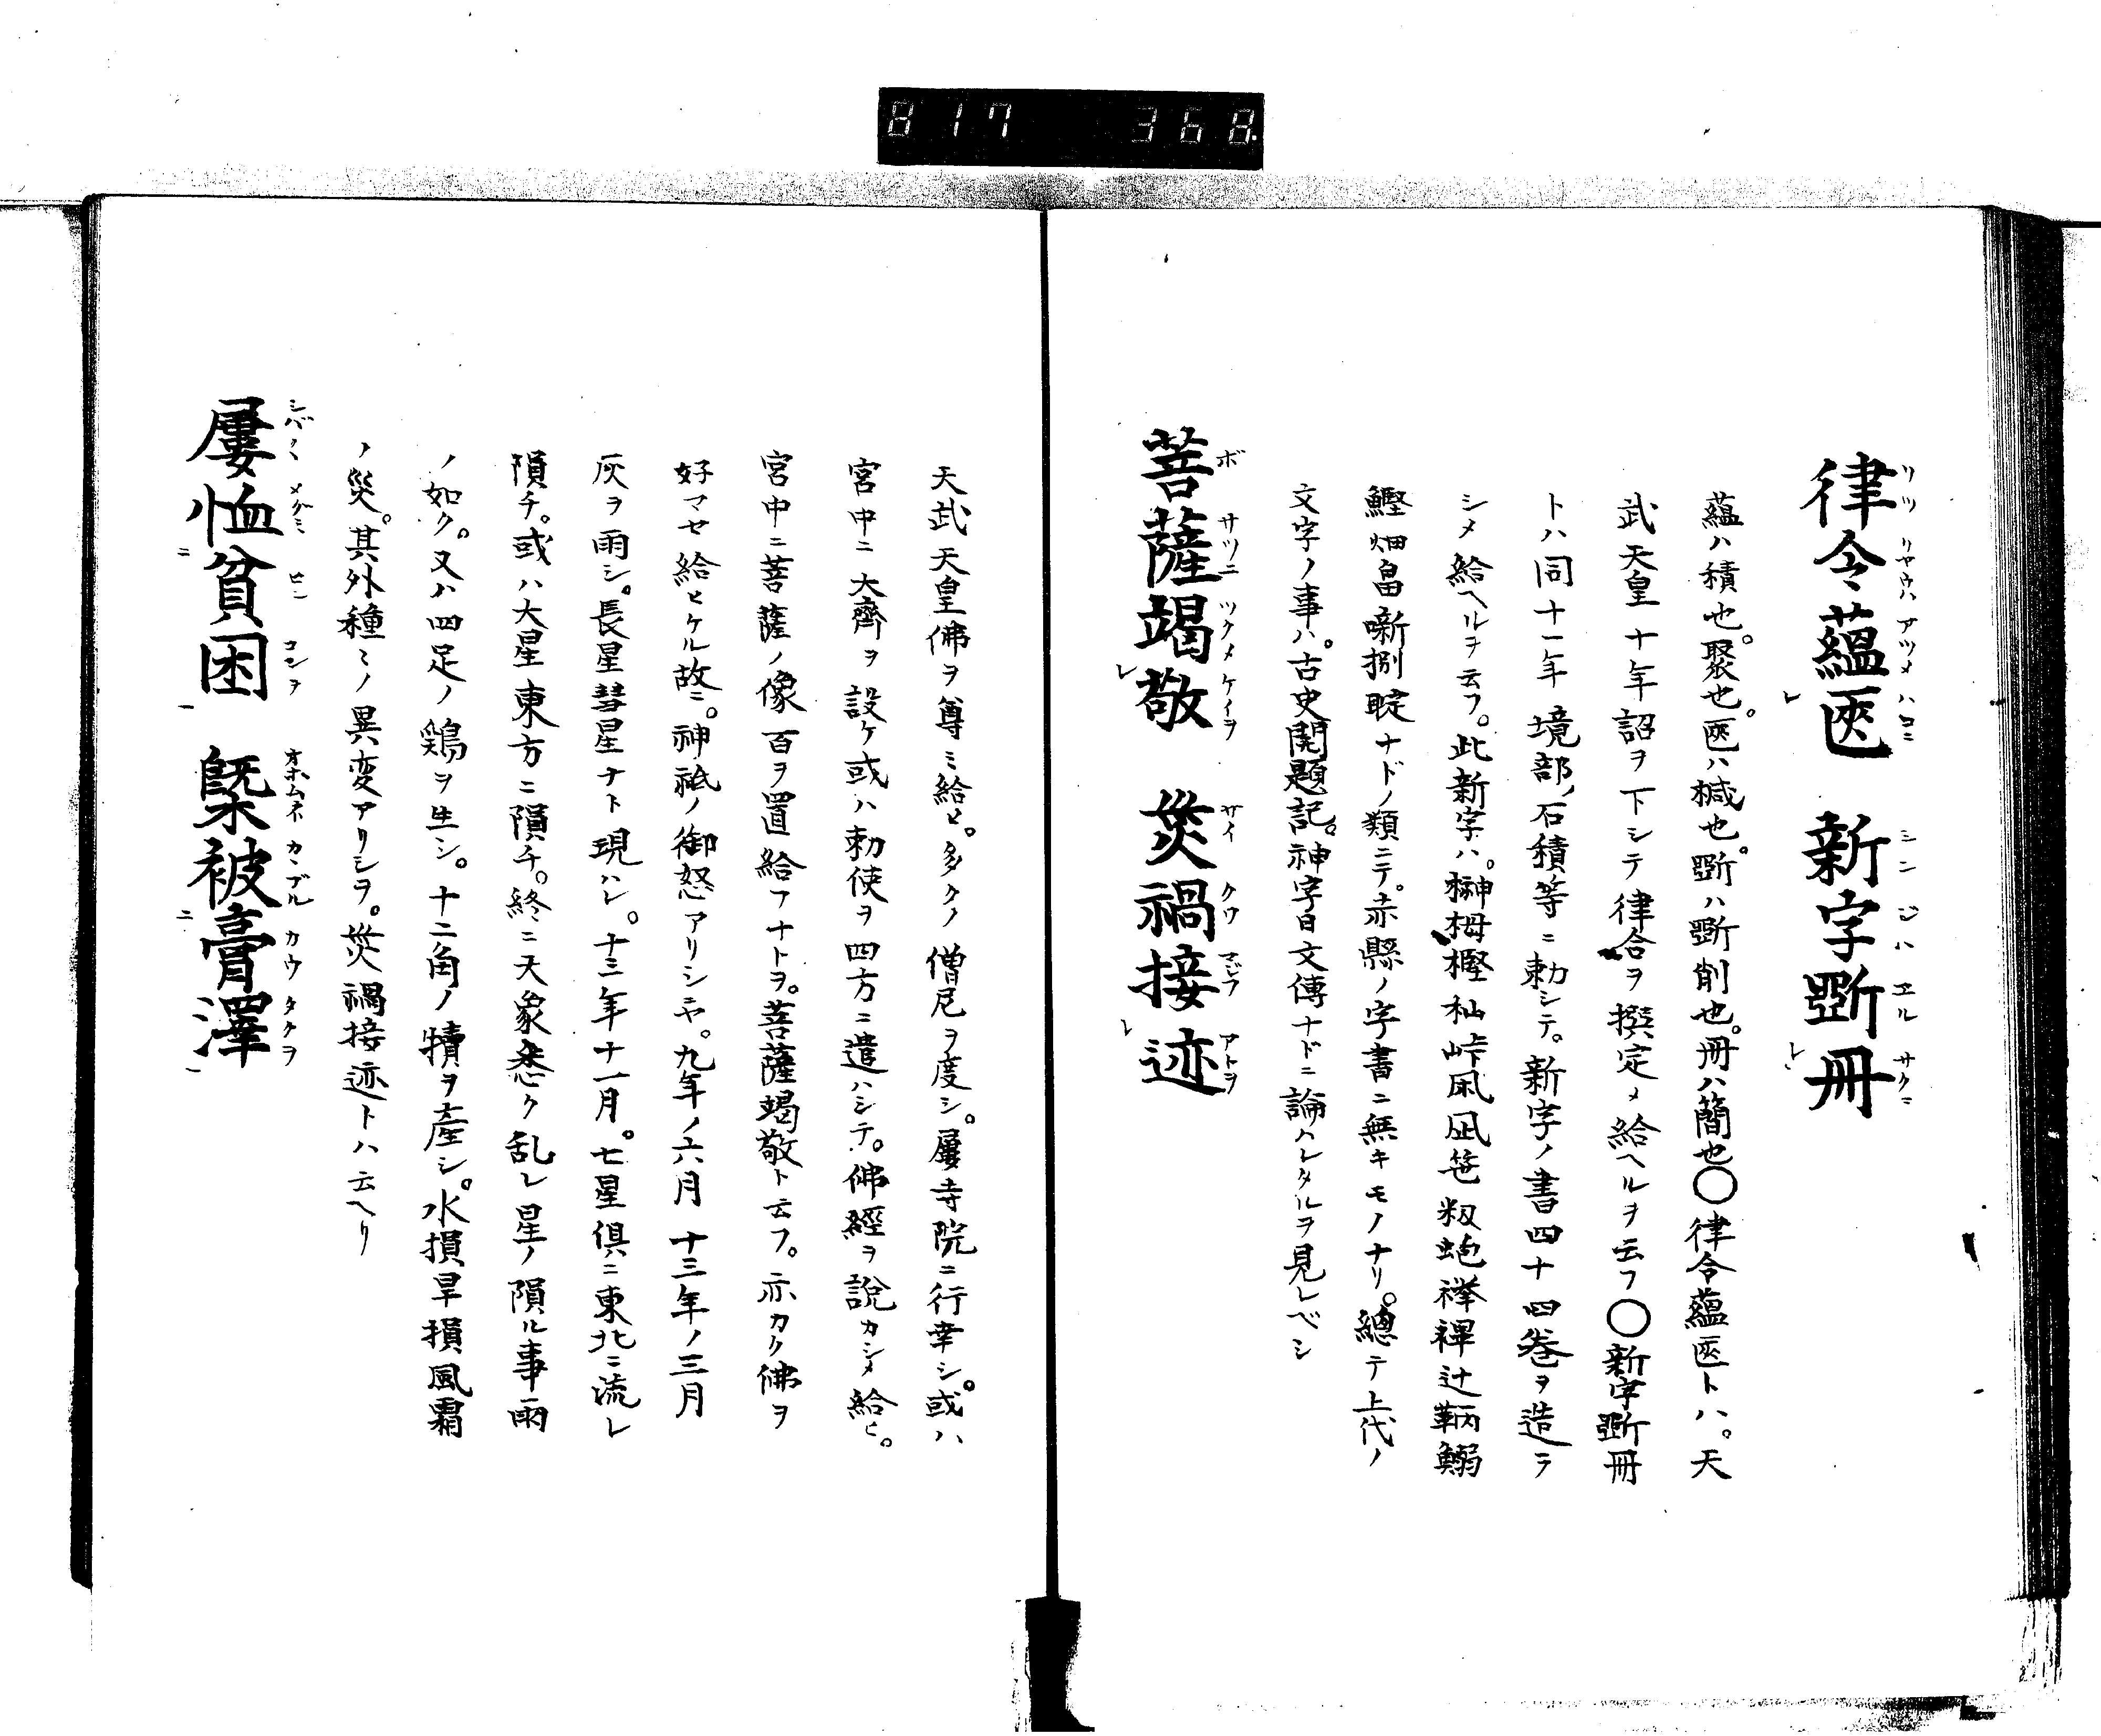 817 368
律令蘊匧 新字斵冊
リツ リヤウハ アツメ ハコニ シン ジハ ヱル サクニ
蘊ハ積也。聚也。匧ハ椷也。斵ハ斵削也。冊ハ簡也〇律令蘊匧トハ。天
武天皇十年詔ヲ下シテ律令ヲ撰定メ給ヘルヲ云フ〇新字斵冊
トハ同十一年境部ノ石積等ニ勅シテ。新字ノ書四十四巻ヲ造ラ
シメ給ヘルヲ云フ。此新字ハ。榊栂樫杣峠凩凪笹籾蚫襷襌辻鞆鰯
鰹畑畠噺捌聢ナドノ類ニテ。赤縣ノ字書ニ無キモノナリ。總テ上代ノ
文字ノ事ハ。古史開題記。神字日文傳ナドニ論ハレタルヲ見レベシ
菩薩竭敬 災禍接迹
ボ サツニ ツクメ ケイヲ サイ クワ マジフ アトヲ
天武天皇佛ヲ尊ミ給ヒ。多クノ僧尼ヲ度シ。屢寺院ニ行幸シ。或ハ
宮中ニ大齊ヲ設ケ或ハ勅使ヲ四方ニ遣ハシテ。佛經ヲ說カシメ給ヒ。
宮中ニ菩薩ノ像百ヲ置給フナトヲ。菩薩竭敬ト云フ。亦カク佛ヲ
好マセ給ヒケル故ニ。神祇ノ御怒アリシニヤ。九年ノ六月十三年ノ三月
灰ヲ雨シ。長星彗星ナト現ハレ。十三年十一月。七星倶ニ東北ニ流レ
隕チ。或ハ大星東方ニ隕チ。終ニ天象悉ク乱レ星ノ隕ル事雨
ノ如ク。又ハ四足ノ鶏ヲ生シ。十二角ノ犢ヲ産シ。水損旱損風霜
ノ災。其外種〻ノ異変アリシヲ。災禍接迹トハ云ヘリ
屢恤貧困 槩被膏澤
シバ〱 メグミ ヒン コンヲ オホムネ カヽブル カウ タクヲ